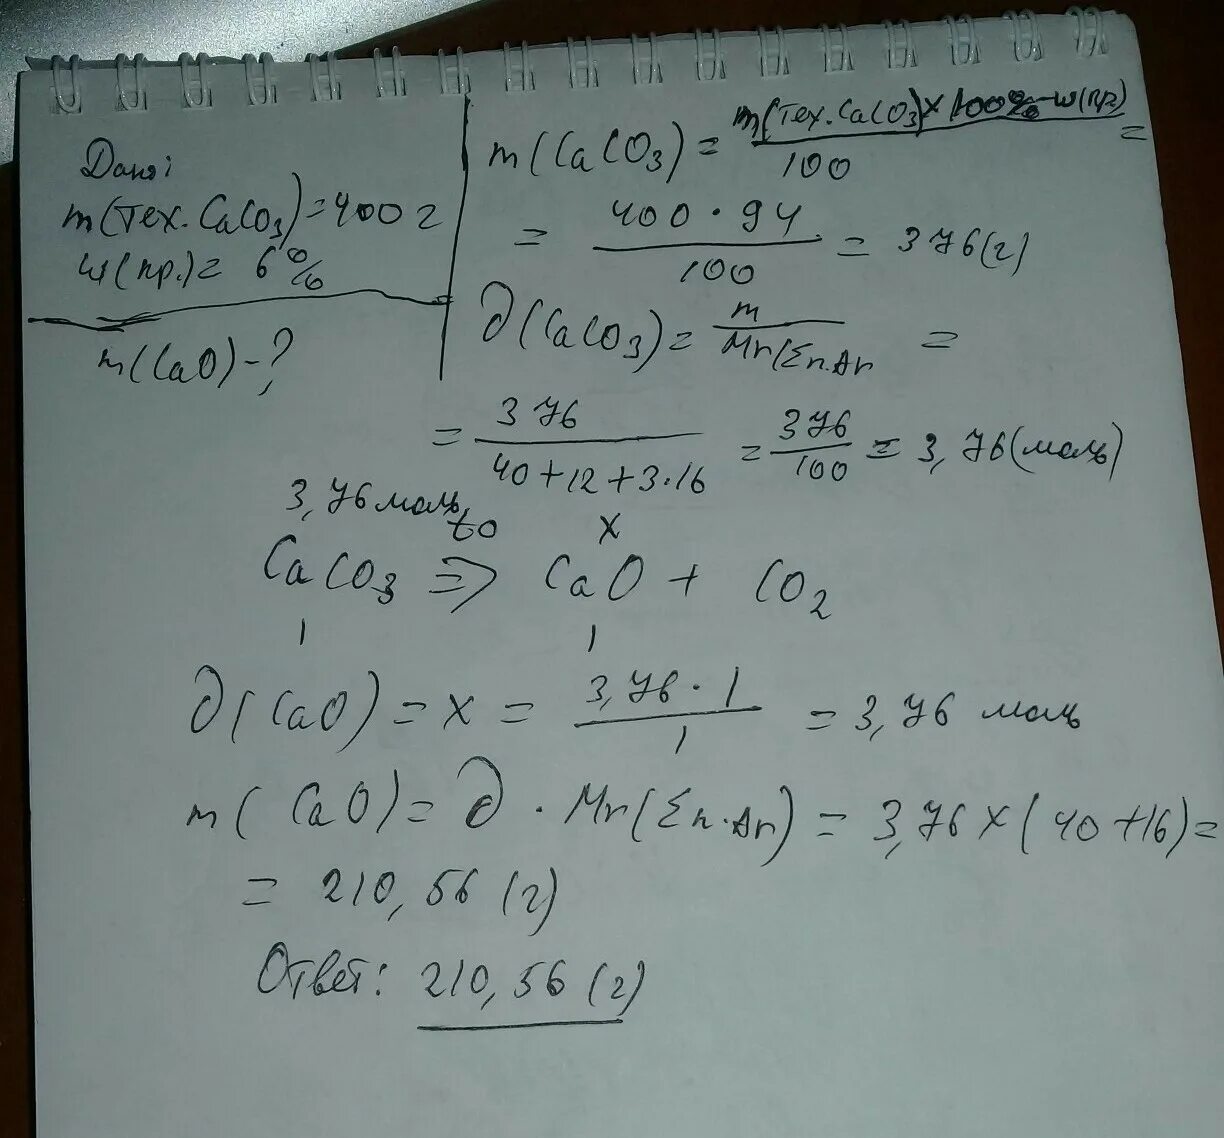 Дано:
m(тех. CaCO3) = 400 г
w(пр.) = 6%
m(CaO) - ?
m(CaCO3) = m(тех. CaCO3) × 100% - w(пр) / 100 =
= 400 · 94 / 100 = 376 (г)
∂(CaCO3) = m / Mr(Σn.Ar =
= 376 / 40 + 12 + 3·16 = 376 / 100 = 3,76 (моль)
3,76 моль to x
CaCO3 => CaO + CO2
1 1
∂(CaO) = x = 3,76 · 1 / 1 = 3,76 моль
m(CaO) = ∂ · Mr(Σn·Ar) = 3,76 × (40 + 16) =
= 210,56 (г)
Ответ: 210,56 (г)